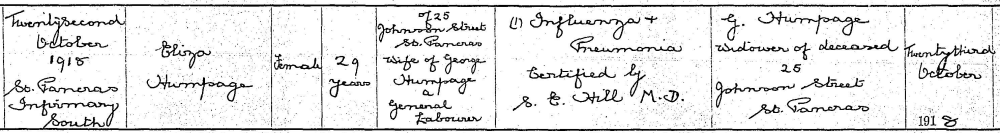 Twentysecond
October
1918
St. Pancras
Infirmary
South
Eliza
Humpage
Female
29
years
of 25
Johnson Street
St. Pancras
Wife of George
Humpage
a
General
Labourer
(1) Influenza +
Pneumonia
Certified by
S. E. Hill M.D.
G. Humpage
Widower of deceased
25
Johnson Street
St. Pancras
Twentythird
October
1918